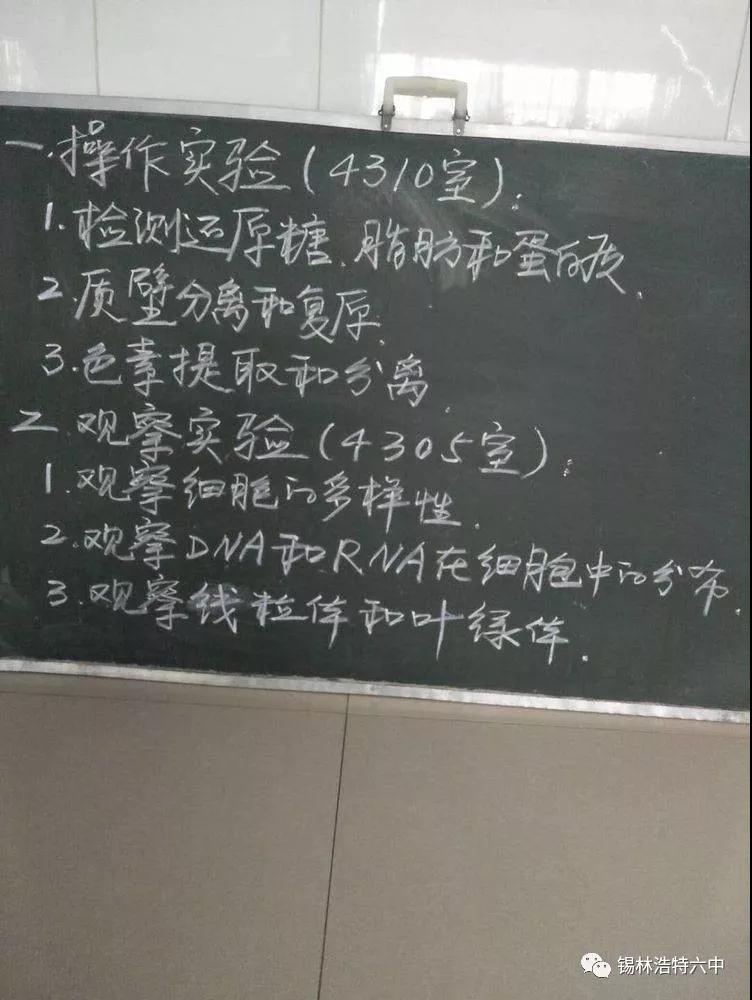 一.操作实验(4310室):
1.检测还原糖、脂肪和蛋白质.
2.质壁分离和复原.
3.色素提取和分离.
二.观察实验(4305室):
1.观察细胞的多样性.
2.观察DNA和RNA在细胞中的分布.
3.观察线粒体和叶绿体.
锡林浩特六中